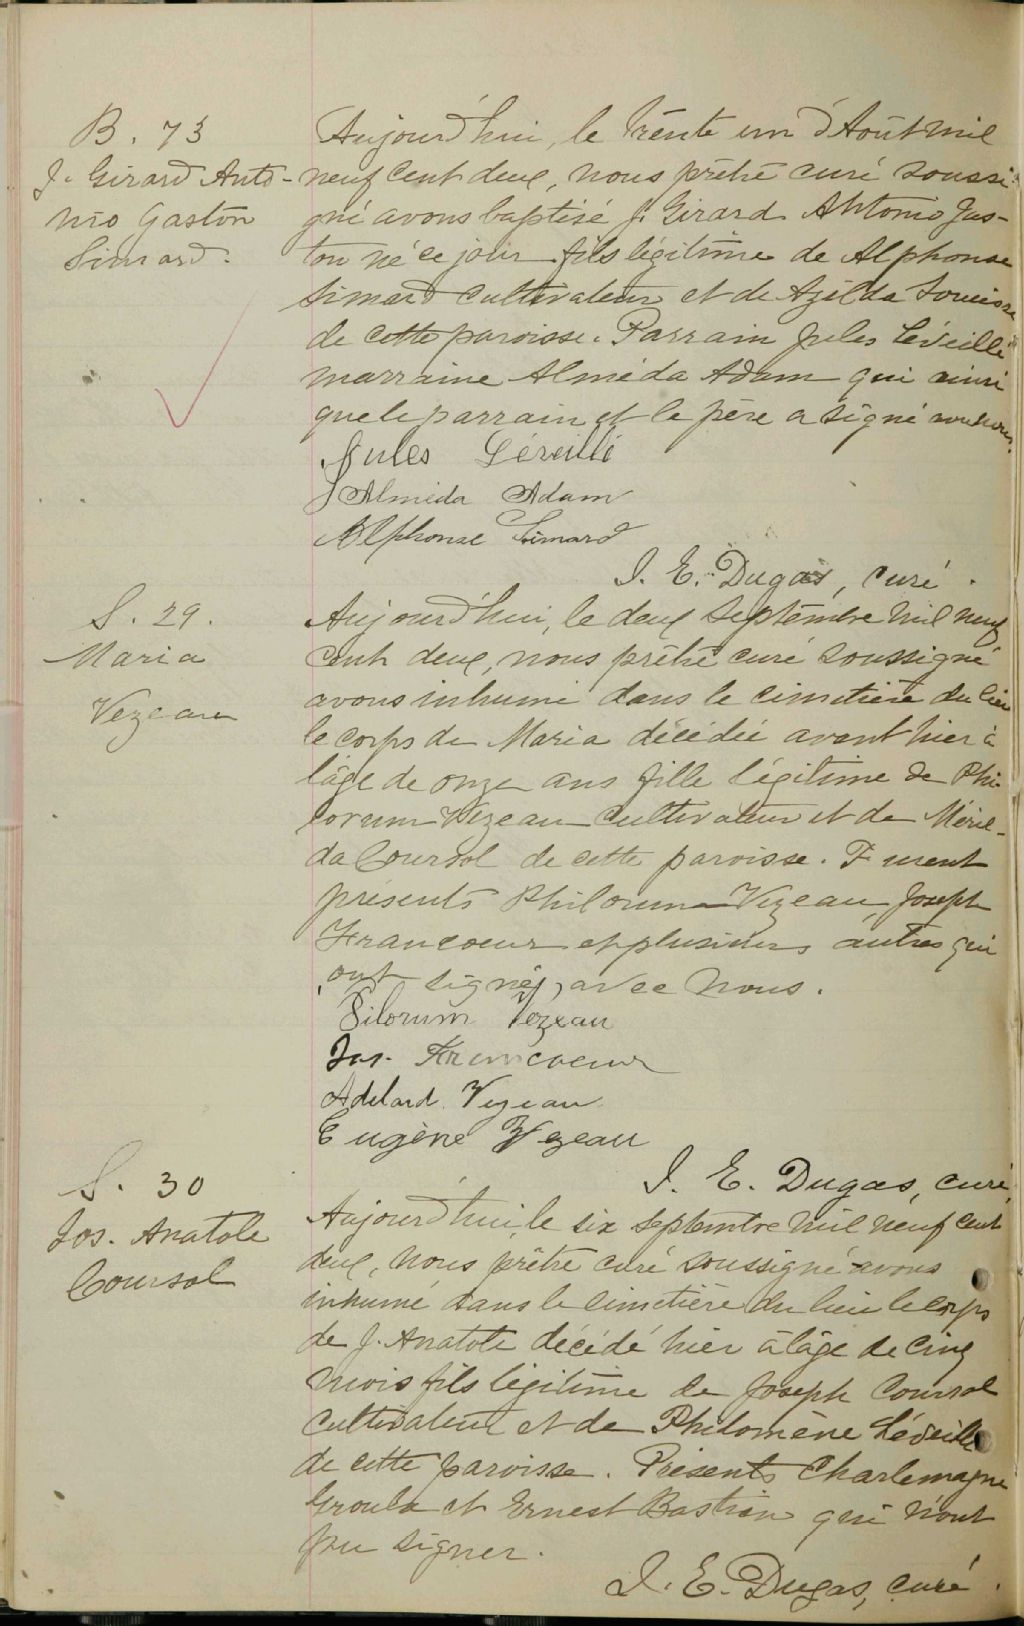 B. 73
J. Girard Anto-
nio Gaston
Simard.
Aujourd'hui, le trente un d'Août mil
neuf cent deux, nous prêtre curé soussi-
gné avons baptisé J. Girard Antonio Gas-
ton né ce jour fils légitime de Alphonse
Simard cultivateur et de Azilda
de cette paroisse. Parrain Jules Léveillé
marraine Alméda Adam qui ainsi
que le parrain et le père a signé avec nous.
Jules Léveillé
Alméda Adam
Alphonse Simard
J. E. Dugas, curé.
S. 29.
Maria
Vezeau
Aujourd'hui, le deux Septembre mil neuf
cent deux, nous prêtre curé soussigné
avons inhumé dans le cimetière du lieu
le corps de Maria décédée avant hier à
l'âge de onze ans fille légitime de Phi-
lorum Vezeau cultivateur et de Méril-
da Coursol de cette paroisse. Furent
présents Philorum Vezeau, Joseph
Francoeur et plusieurs autres qui
ont signé, avec nous.
Pilorum Vezeau
Jos. Francoeur
Adelard Vezeau
Eugène Vezeau
J. E. Dugas, curé
S. 30
Jos. Anatole
Coursol
Aujourd'hui, le six Septembre mil neuf cent
deux, nous prêtre curé soussigné avons
inhumé dans le cimetière du lieu le corps
de J. Anatole décédé hier à l'âge de cinq
mois fils légitime de Joseph Coursol
cultivateur et de Philomène Léveillé
de cette paroisse. Présents Charlemagne
Groulx et Ernest Bastien qui n'ont
pu signer.
J. E. Dugas, curé.